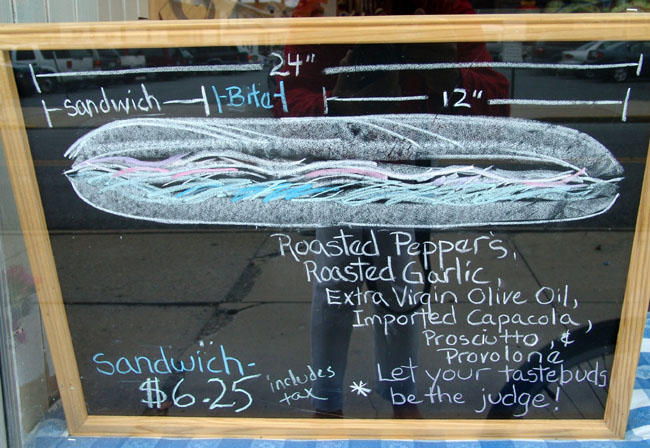 24"
Sandwich Bite 12"
Roasted Pepper's,
Roasted Garlic,
Extra Virgin Olive Oil,
Imported Capacola,
Prosciutto, &
Provolone
Sandwich-
$6.25 includes
tax
* Let your tastebuds
be the judge!